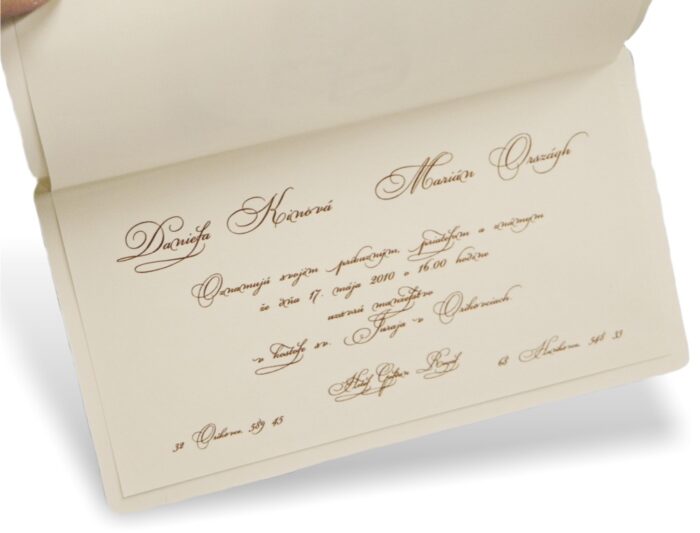 Daniela Kinová Marián Országh
Oznamujú svojim príbuzným, priateľom a známym
že dňa 17. mája 2010 o 16.00 hodine
uzavrú manželstvo
v kostole sv. Juraja v Orihoviciach
52 589 45
63 548 33